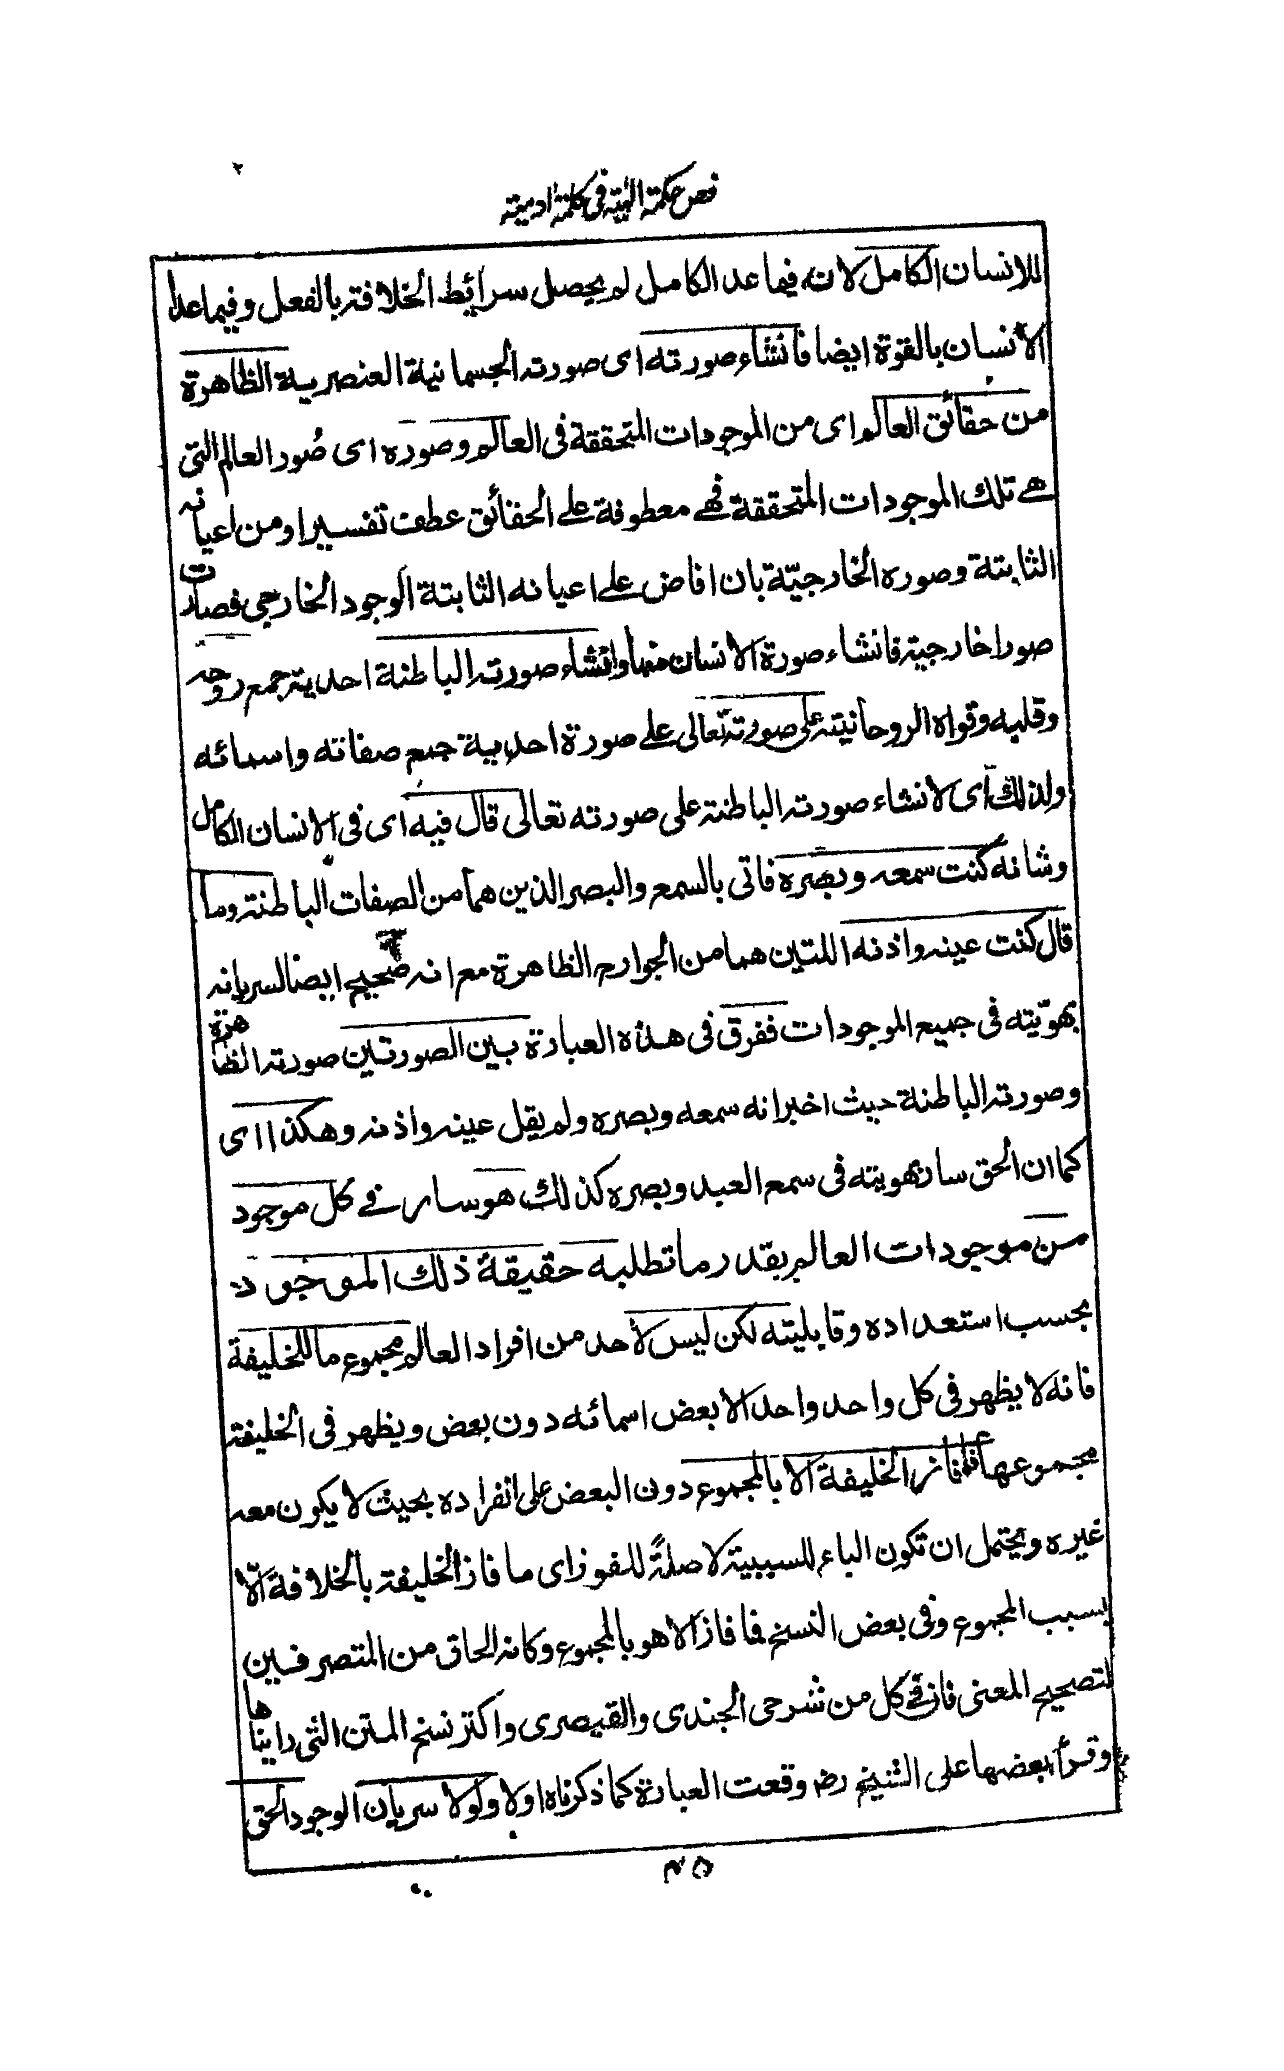 فص حكمة الهية فى كلمة ادمية
للانسان الكامل لانه فيما عدا الكامل لم يحصل سرائط الخلافة بالفعل وفيما عدا
الانسان بالقوة ايضا فانشاء صورته اى صورته الجسمانية العنصرية الظاهرة
من حقائق العالم اى من الموجودات المتحققة فى العالم وصوره اى صُور العالم التى
هے تلك الموجودات المتحققة فهے معطوفة علے الحقائق عطف تفسير او من اعيانه
الثابتة وصوره الخارجيّة بان افاض علے اعيانه الثابتة الوجود الخارجى فصارت
صورا خارجية فانشاء صورة الانسان منها وانشاء صورته الباطنة احدية جمع روحه
وقلبه وقواه الروحانية على صورته تعالى علے صورة احدية جمع صفاته واسمائه
ولذلك اى لانشاء صورته الباطنة على صورته تعالى قال فيه اى فى الانسان الكامل
وشانه كنت سمعه وبصره فاتى بالسمع والبصر الذين هما من الصفات الباطنة وما
قال كنت عينه واذنه اللتين هما من الجوارح الظاهرة مع انه صحيح ايضا لسريانه
بهويّته فى جميع الموجودات ففرق فى هذه العبارة بين الصورتين صورته الظاهرة
وصورته الباطنة حيث اخبر انه سمعه وبصره ولم يقل عينه واذنه وهكذا اى
كما ان الحق سار بهويته فى سمع العبد وبصره كذلك هو سار فے كل موجود
من موجودات العالم بقدر ما تطلبه حقيقة ذلك الموجود
بحسب استعداده وقابليته لكن ليس لأحد من افراد العالم مجموع ما للخليفة
فانه لا يظهر فى كل واحد واحد الا بعض اسمائه دون بعض ويظهر فى الخليفة
مجموعها فما فاز الخليفة الا بالمجموع دون البعض على انفراده بحيث لا يكون معه
غيره ويحتمل ان تكون الباء للسببية لا صلةً للفوز اى ما فاز الخليفة بالخلافة الّا
بسبب المجموع وفى بعض النسخ فما فاز الا هو بالمجموع وكانه الحاق من المتصرفين
لتصحيح المعنى فان فے كل من شرحى الجندى والقيصرى واكثر نسخ المتن التى رايناها
وقرأ بعضها على الشيخ رضـ وقعت العبارة كما ذكرناه اولا ولولا سريان الوجود الحق